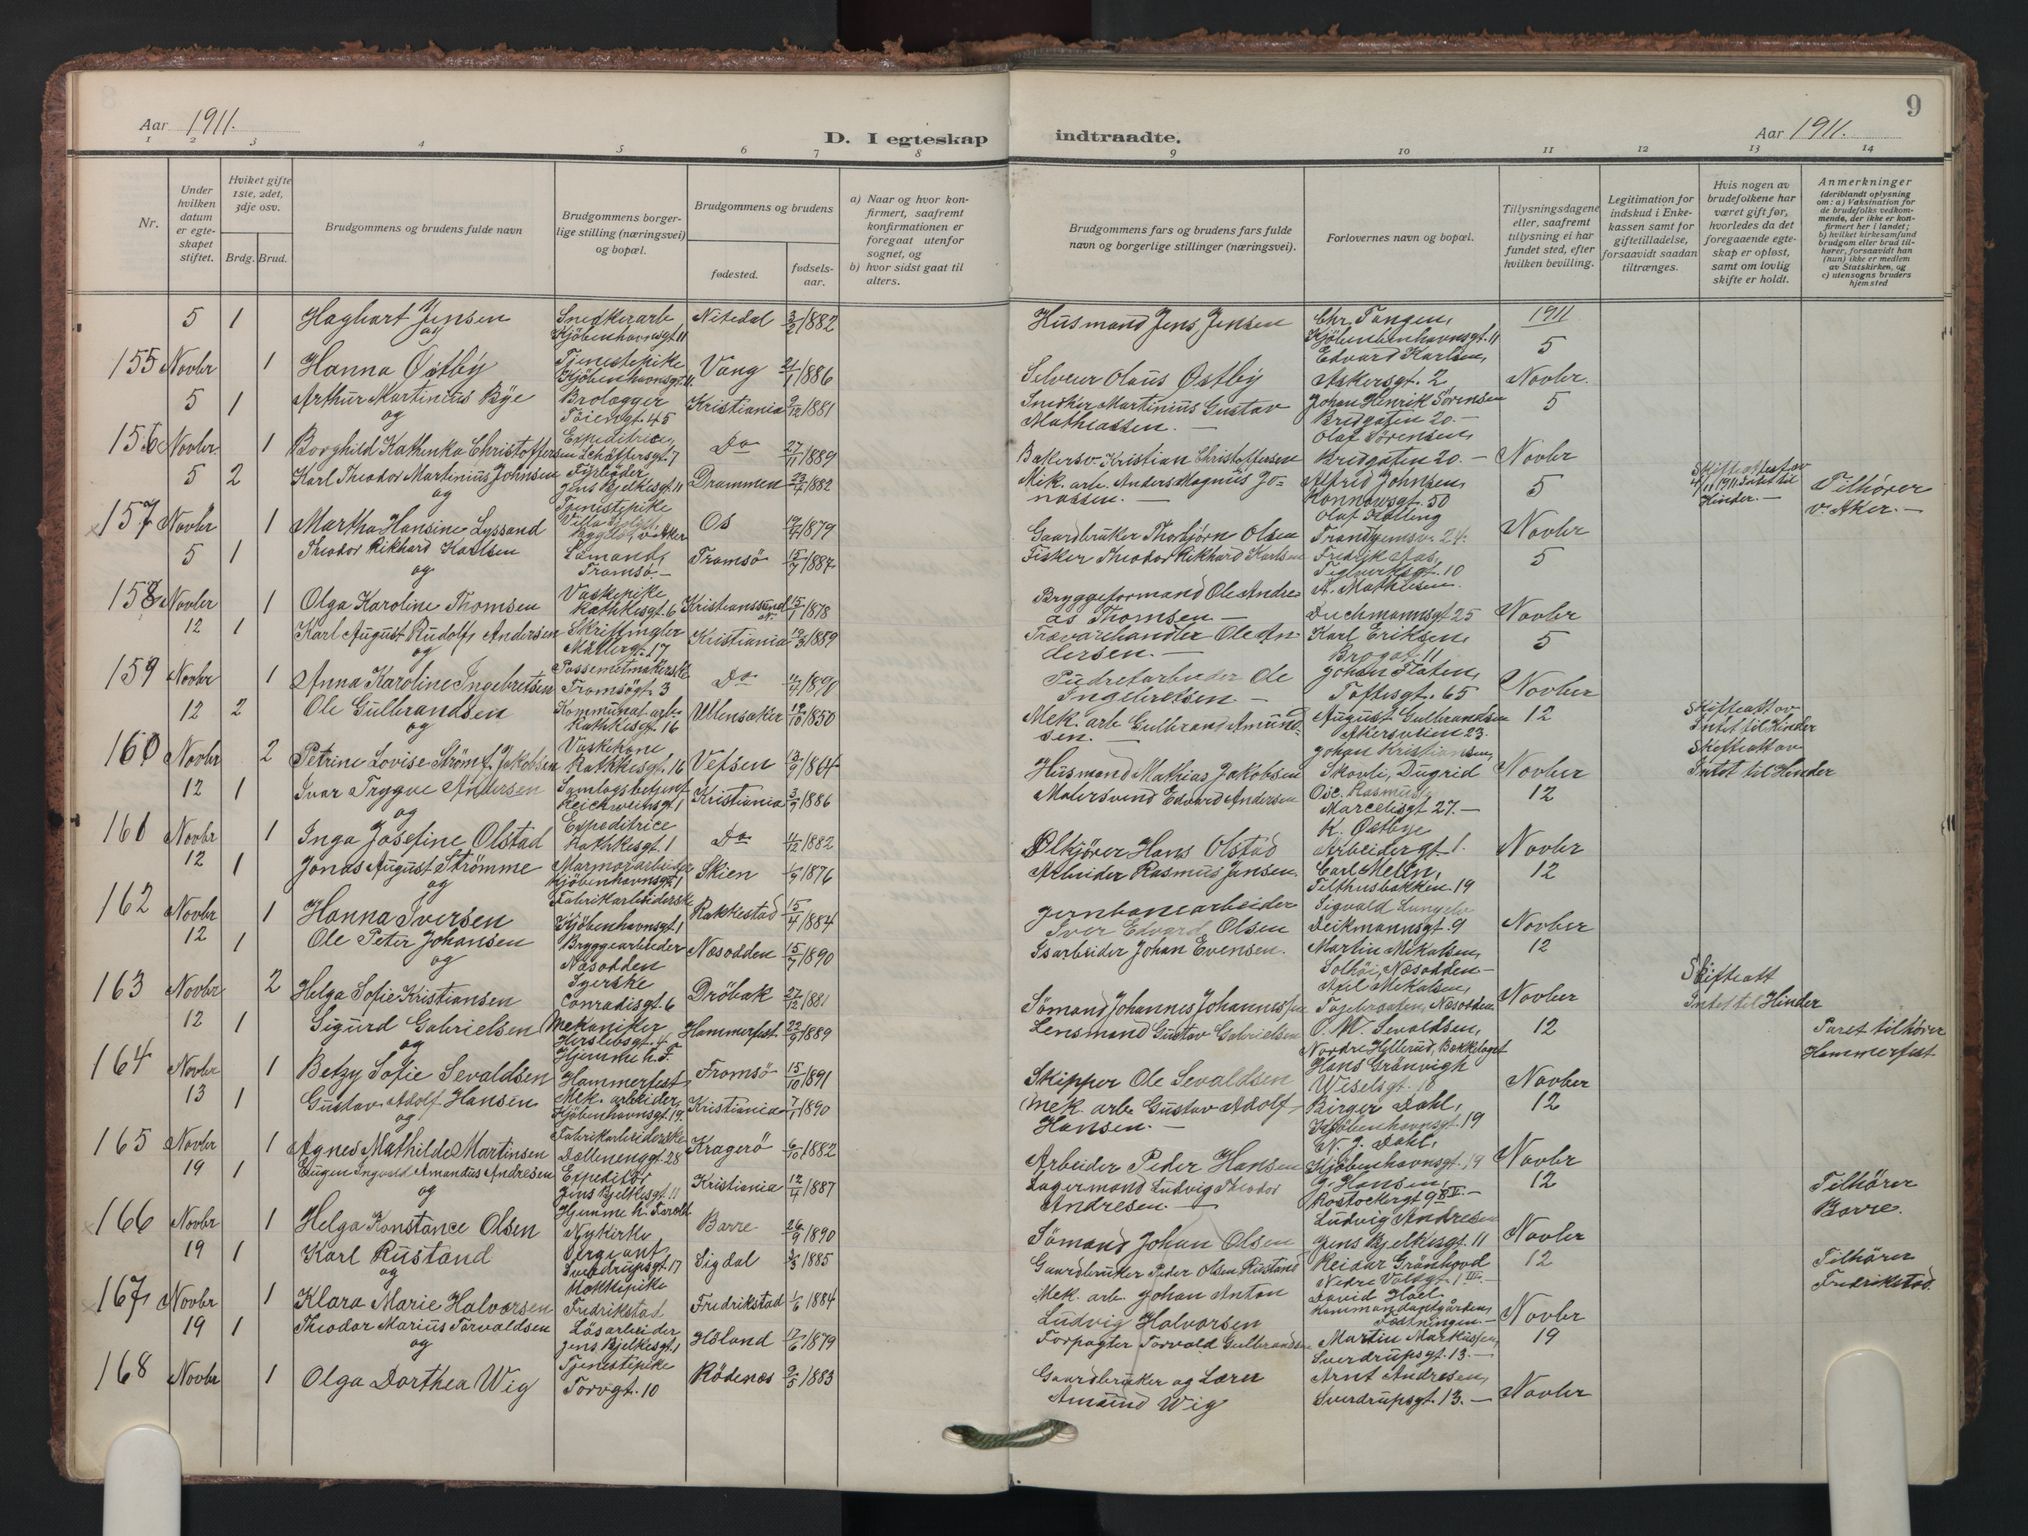 Aar 1911.
D. I egteskap indtraadte.
Aar 1911.
9
1 2 3 4 5 6 7 8 9 10 11 12 13 14
Nr.
Under hvilken datum er egteskapet stiftet.
Hviket gifte 1ste, 2det, 3dje osv.
Brdg. Brud.
Brudgommens og brudens fulde navn
Brudgommens borgerlige stilling (næringsvei) og bopæl.
Brudgommens og brudens
fødested.
fødselsaar.
a) Naar og hvor konfirmert, saafremt konfirmationen er foregaat utenfor sognet, og
b) hvor sidst gaat til alters.
Brudgommens fars og brudens fars fulde navn og borgerlige stillinger (næringsvei).
Forlovernes navn og bopæl.
Tillysningsdagene eller, saafremt tillysning ei har fundet sted, efter hvilken bevilling.
Legitimation for indskud i Enkekassen samt for giftetilladelse, forsaavidt saadan tiltrænges.
Hvis nogen av brudefolkene har været gift før, hvorledes da det foregaaende egteskap er opløst, samt om lovlig skifte er holdt.
Anmerkninger (deriblandt oplysning om: a) Vaksination for de brudefolks vedkommende, der ikke er konfirmert her i landet; b) hvilket kirkesamfund brudgom eller brud tilhører, forsaavidt han (hun) ikke er medlem av Statskirken, og c) utensogns bruders hjemsted
5 1 Haghart Jensen Snedkerarb Nitedal 3/2 1882 Husmand Jens Jensen Chr. Tangen, 1911
og Kjöbenhavnsgt 11 Kjöbenhavnsgt. 11 5
155 Novbr 1 Hanna Østby Tjenestepike Vang 21/1 1886 Selveier Olaus Østby Edvard Karlsen, Novbr.
Kjöbenhavnsgt. 11. Akersgt. 2
5 1 Arthur Martinius Bye Brolægger Kristiania 9/12 1881 Snedker Martinius Gustav Johan Henrik Sørensen 5
og Töiengt. 45 Mathiassen. — Bredgaten 20. —
156 Novbr 1 Borghild Kathinka Christoffersen Expeditrice, Do 27/11 1889 Bakersv. Kristian Christoffersen Olaf Sørensen, Novbr
Schøttersgt. 7 Bredgaten 20. —
5 2 Karl Theodor Martinius Johnsen Fyrböder Drammen 23/4 1882 Mek. arb. Anders Magnus Jonassen. — Alfred Johnsen, 5 Skifteattest av 4/11 1911 Intet til Hinder. — Tilhører
og Jens Bjelkesgt. 11 Konnowsgt. 50 v. Aker. —
157 Novbr 1 Martha Hansine Lyssand Tjenestepike Os 1879 Gaardbruker Thorbjørn Olsen Olaf Kolling Novbr
Villa Bygdö v. Aker Trondhjemsv. 24.
5 1 Theodor Rikhard Karlsen Sømand, Tromsö 15/7 1887 Fisker Theodor Rikhard Karlsen Fredrik Aas, 5
og Tromsö. — Teglverksgt. 10
158 Novbr 1 Olga Karoline Thomsen Vaskepike Kristianssund N. 15/1 1878 Bryggeformand Ole Andreas Thomsen — A. Mathiesen. Novbr
Rathkesgt. 6 Duehmannsgt 25
12 1 Karl August Rudolf Andersen Skriftingler Kristiania 19/3 1889 Trævarehandler Ole Andersen. — Karl Eriksen, 5
og Møllergt. 17 Brogat. 11
159 Novbr 1 Anna Karoline Ingebretsen Possementmakerske Do 1890 Pudretarbeider Ole Ingebretsen — Johan Flaten, Novber
Tromsögt. 3 Toftesgt. 65
12 2 Ole Gulbrandsen Kommunal arb. Ullensaker 19/10 1850 Mek. arb Gulbrand Amundsen. — August Gulbrandsen 12 Skifteatt av Intet til Hinder
og Rathkesgt. 16 Akersveien 23.
160 Novbr 2 Petrine Lovise Strøm f. Jakobsen Vaskekone Vefsen 13/9 1864 Husmand Mathias Jakobsen Johan Kristiansen, Novber Skifteatt av Intet til Hinder
Rathkesgt. 16 Skovli, Dugrid
12 1 Ivar Trygve Andersen Samlagsbetjent Kristiania 3/9 1886 Malersvend Edvard Andersen Osc. Rasmus 12
og Reichweinsgt. 1 Marcelisgt 27. —
161 Novbr 1 Inga Josefine Olstad Expeditrice Do 4/12 1882 Ølkjører Hans Olstad K. Østbye Novbr
Rathkesgt. 1 Arbeidergt. 1.
12 1 Jonas August Strömme Marmorarbeider Skien 1/9 1876 Arbeider Rasmus Jensen Carl Melin, 12
og Kjöbenhavnsgt. 1 Telthusbakken. 19
162 Novbr 1 Hanna Iversen Fabrikarbeiderske Rakkestad 15/4 1884 Jernbanearbeider Iver Edvard Olsen Sigvald Novber
Kjöbenhavnsgt. 1 Deikmannsgt. 9
12 1 Ole Peter Johansen Bryggearbeider Næsodden 15/7 1890 Isarbeider Johan Evensen. Martin Mikalsen, 12
og Næsodden Solhöi, Næsodden —
163 Novbr 2 Helga Sofie Kristiansen Syerske Dröbak 27/12 1881 Sömand Johannes Johannessen Axel Mikalsen, Novber Skifteatt Intet til Hinder
Conradisgt. 6 Næsodden
12 1 Sigurd Gabrielsen Mekaniker Hammerfest. 22/9 1889 Lensmand Gustav Gabrielsen O. M. Sevaldsen, 12 Paret tilhører
og Herslebsgt. 4 Nordre Hyllerud, Bækkelaget Hammerfest
Hjemme h. F.
164 Novbr 1 Betzy Sofie Sevaldsen Hammerfest, Tromsö 15/10 1891 Skipper Ole Sevaldsen Hans Grönvigh Novber
Wiselsgt. 18
13 1 Gustav Adolf Hansen Mek. arbeider, Kristiania 7/1 1890 Mek. arb. Gustav Adolf Hansen. — Birger Dahl, 12
og Kjöbenhavnsgt. 19. Kjöbenhavnsgt. 19
165 Novbr 1 Agnes Mathilde Martinsen Fabrikarbeiderske Kragerö 6/10 1882 Arbeider Peder Hansen N. J. Dahl, Novbr
Dællenenggt. 28 Kjöbenhavnsgt. 19
19 1 Eugen Ingvald Amandus Andresen Expeditör Kristiania 12/4 1887 Lagermand Ludvig Theodor Andresen — G. Hansen, 12 Tilhører
og Jens Bjelkesgt. 11 Rostockergt 9 Borre.
166 Novbr 1 Helga Konstance Olsen Hjemme h. Forold Borre 26/9 1890 Sömand Johan Olsen Ludvig Andresen Novber
Nykirke Jens Bjelkesgt. 11
19 1 Karl Rustand Sergeant, Sigdal 3/3 1885 Gaardbruker Peder Olsen Rustand Reidar Grönhovd 12 Tilhører
og Sverdrupsgt. 17 Nedre Voldsgt. 1 III. — Fredrikstad.
167 Novbr 1 Klara Marie Halvorsen Kokkepike Fredrikstad 1/6 1884 Mek. arb. Johan Anton Ludvig Halvorsen David Hoel, Novber
Fredrikstad Kommandantgården, Fæstningen —
19 1 Theodor Marius Torvaldsen Lösarbeider Høland 17/6 1879 Forpagter Torvald Gulbrandsen Martin Markussen, 19
og Jens Bjelkesgt. 1 Sverdrupsgt. 13. —
168 Novbr 1 Olga Dorthea Wig Tjenestepike Rödenæs 9/5 1883 Gaardbruker og Lærer Amund Wig Arnt Andresen, Novbr
Torvgt. 10 Sverdrupsgt. 13. —